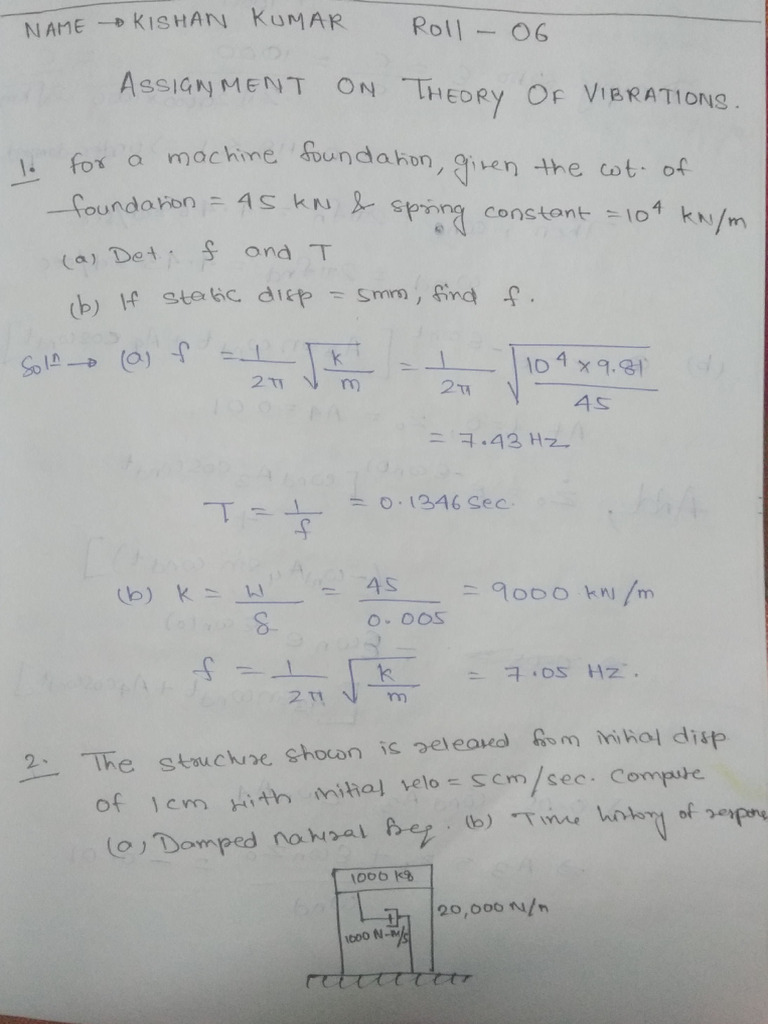 NAME → KISHAN KUMAR Roll - 06
ASSIGNMENT ON THEORY OF VIBRATIONS.
1. For a machine foundation, given the wt. of
foundation = 45 KN & spring constant = 10⁴ KN/m
(a) Det. f and T
(b) If static disp = 5mm, find f.
Solⁿ → (a) f = 1/2π √(k/m) = 1/2π √(10⁴ × 9.81/45)
= 7.43 Hz
T = 1/f = 0.1346 sec.
(b) K = W/δ = 45/0.005 = 9000 kN/m
f = 1/2π √(k/m) = 7.05 Hz.
2. The structure shown is released from initial disp
of 1cm with initial velo = 5cm/sec. Compute
(a) Damped natural freq. (b) Time history of response
1000 kg
20,000 N/m
1000 N-m/s